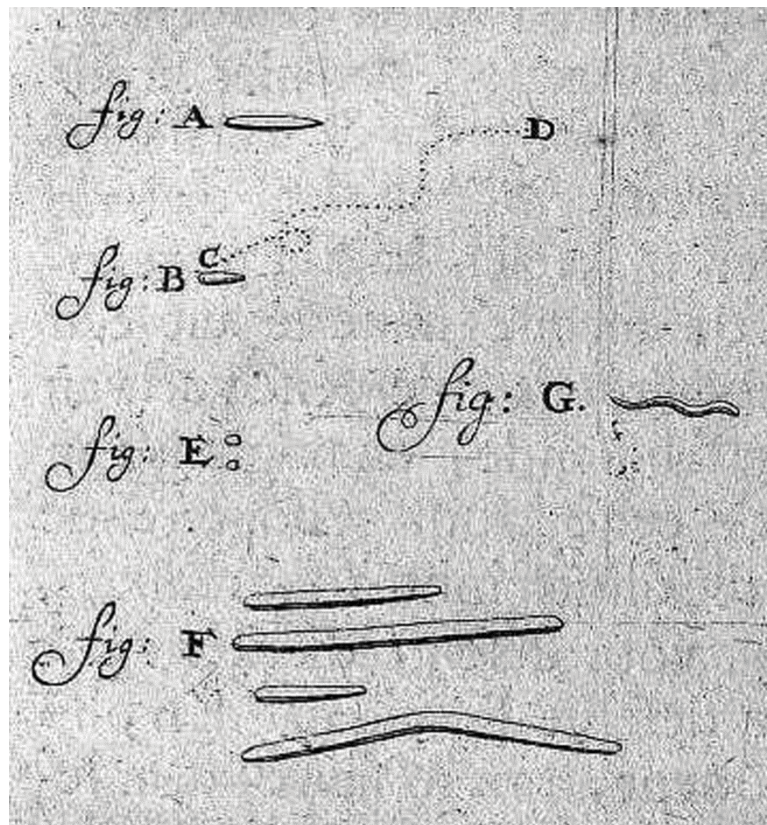 fig: A
D
C
fig: B
fig: G.
fig: E
fig: F